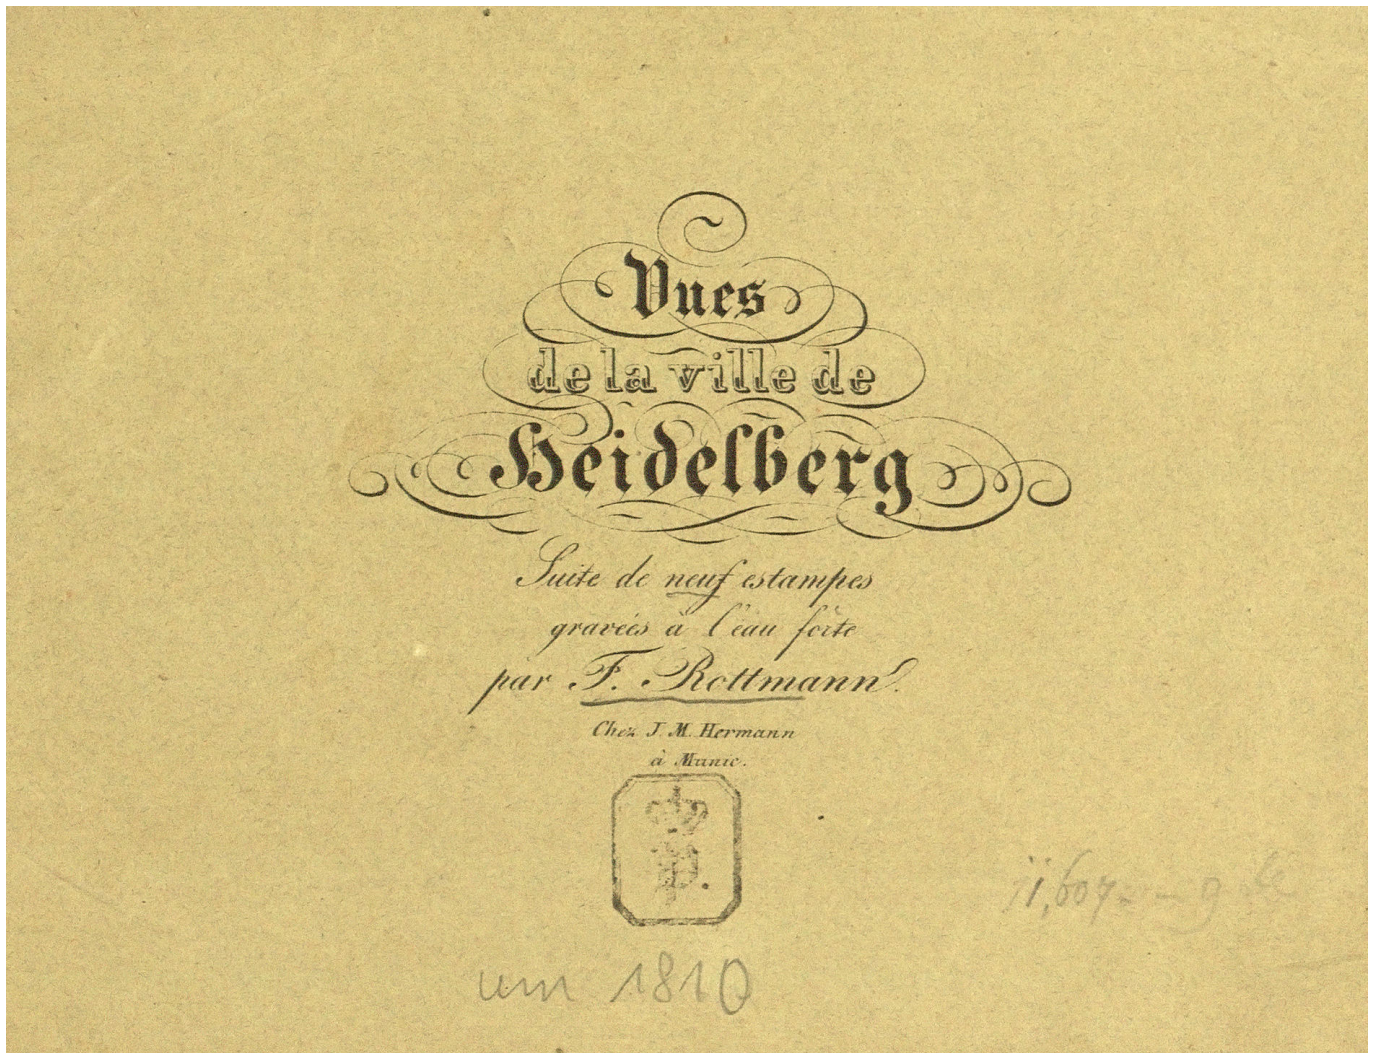 Vues
de la ville de
Heidelberg
Suite de neuf estampes
gravées à l'eau forte
par F. Rottmann.
Chez J. M. Hermann
à Munic.
P.
um 1810